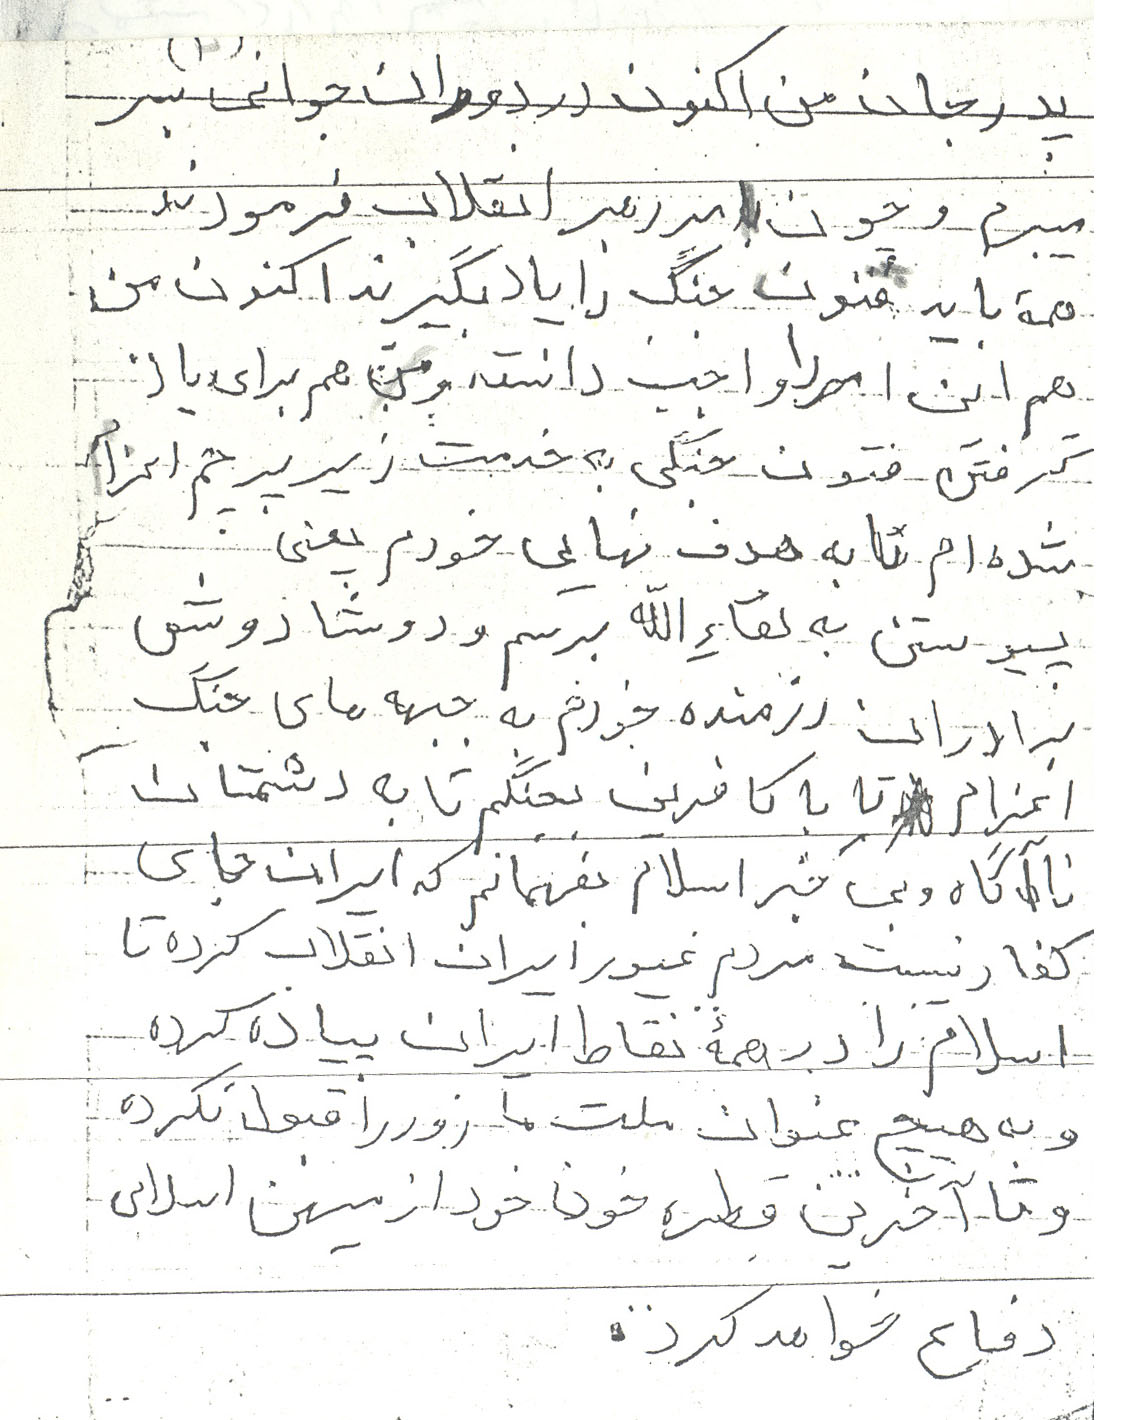 (۲)
پدرجان من اکنون در دوران جوانی بسر
میبرم و چون رهبر انقلاب فرمودند
همه باید فنون جنگ را یاد بگیرند اکنون من
هم این امر را واجب دانسته و من هم برای یاد
گرفتن فنون جنگی به خدمت زیر پرچم اعزام
شده ام تا به هدف نهایی خودم یعنی
پیوستن به لقاءِ الله برسم و دوشادوش
برادران رزمنده خودم به جبهه های جنگ
اعزام تا با کافرین بجنگم تا به دشمنان
ناآگاه وبی خبر اسلام بفهمانم که ایران جای
کفار نیست مردم غیور ایران انقلاب کرده تا
اسلام را در همهٔ نقاط ایران پیاده کرده
و به هیچ عنوان ملت ما زور را قبول نکرده
و تا آخرین قطره خون خود از میهن اسلامی
دفاع خواهد کرد.